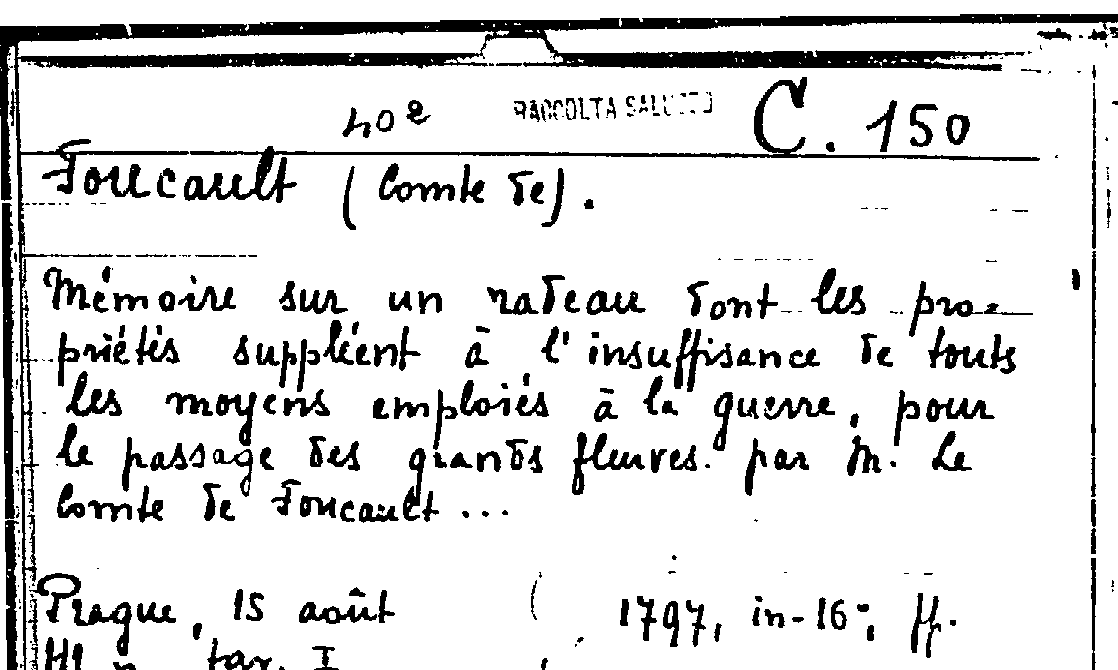 RACCOLTA SALUZZO C. 150
Foucault (Comte de).
Mémoire sur un radeau dont les pro-
priétés suppléent à l'insuffisance de touts
les moyens emploiés à la guerre, pour
le passage des grands fleuves. par M. Le
Comte de Foucault ...
Prague, 15 août 1797, in-16°, ff.
tav. I